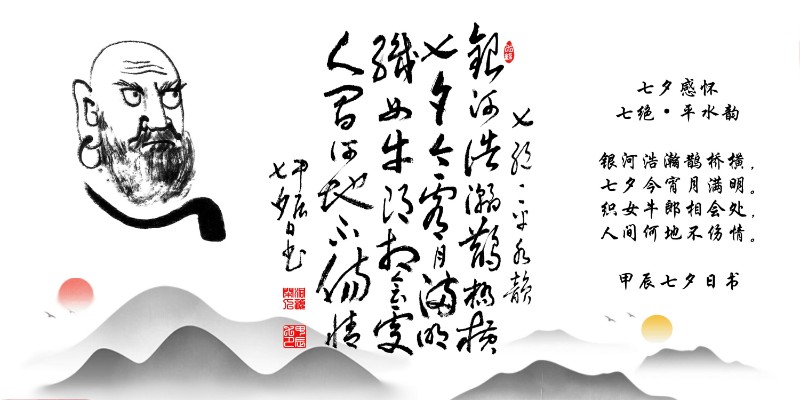 七绝·平水韵
銀河浩瀚鵲橋横
七夕今宵月满明
織女牛郎相会处
人间何地不傷情
甲辰
七夕日书
七夕感怀
七绝·平水韵
银河浩瀚鹊桥横，
七夕今宵月满明。
织女牛郎相会处，
人间何地不伤情。
甲辰七夕日书